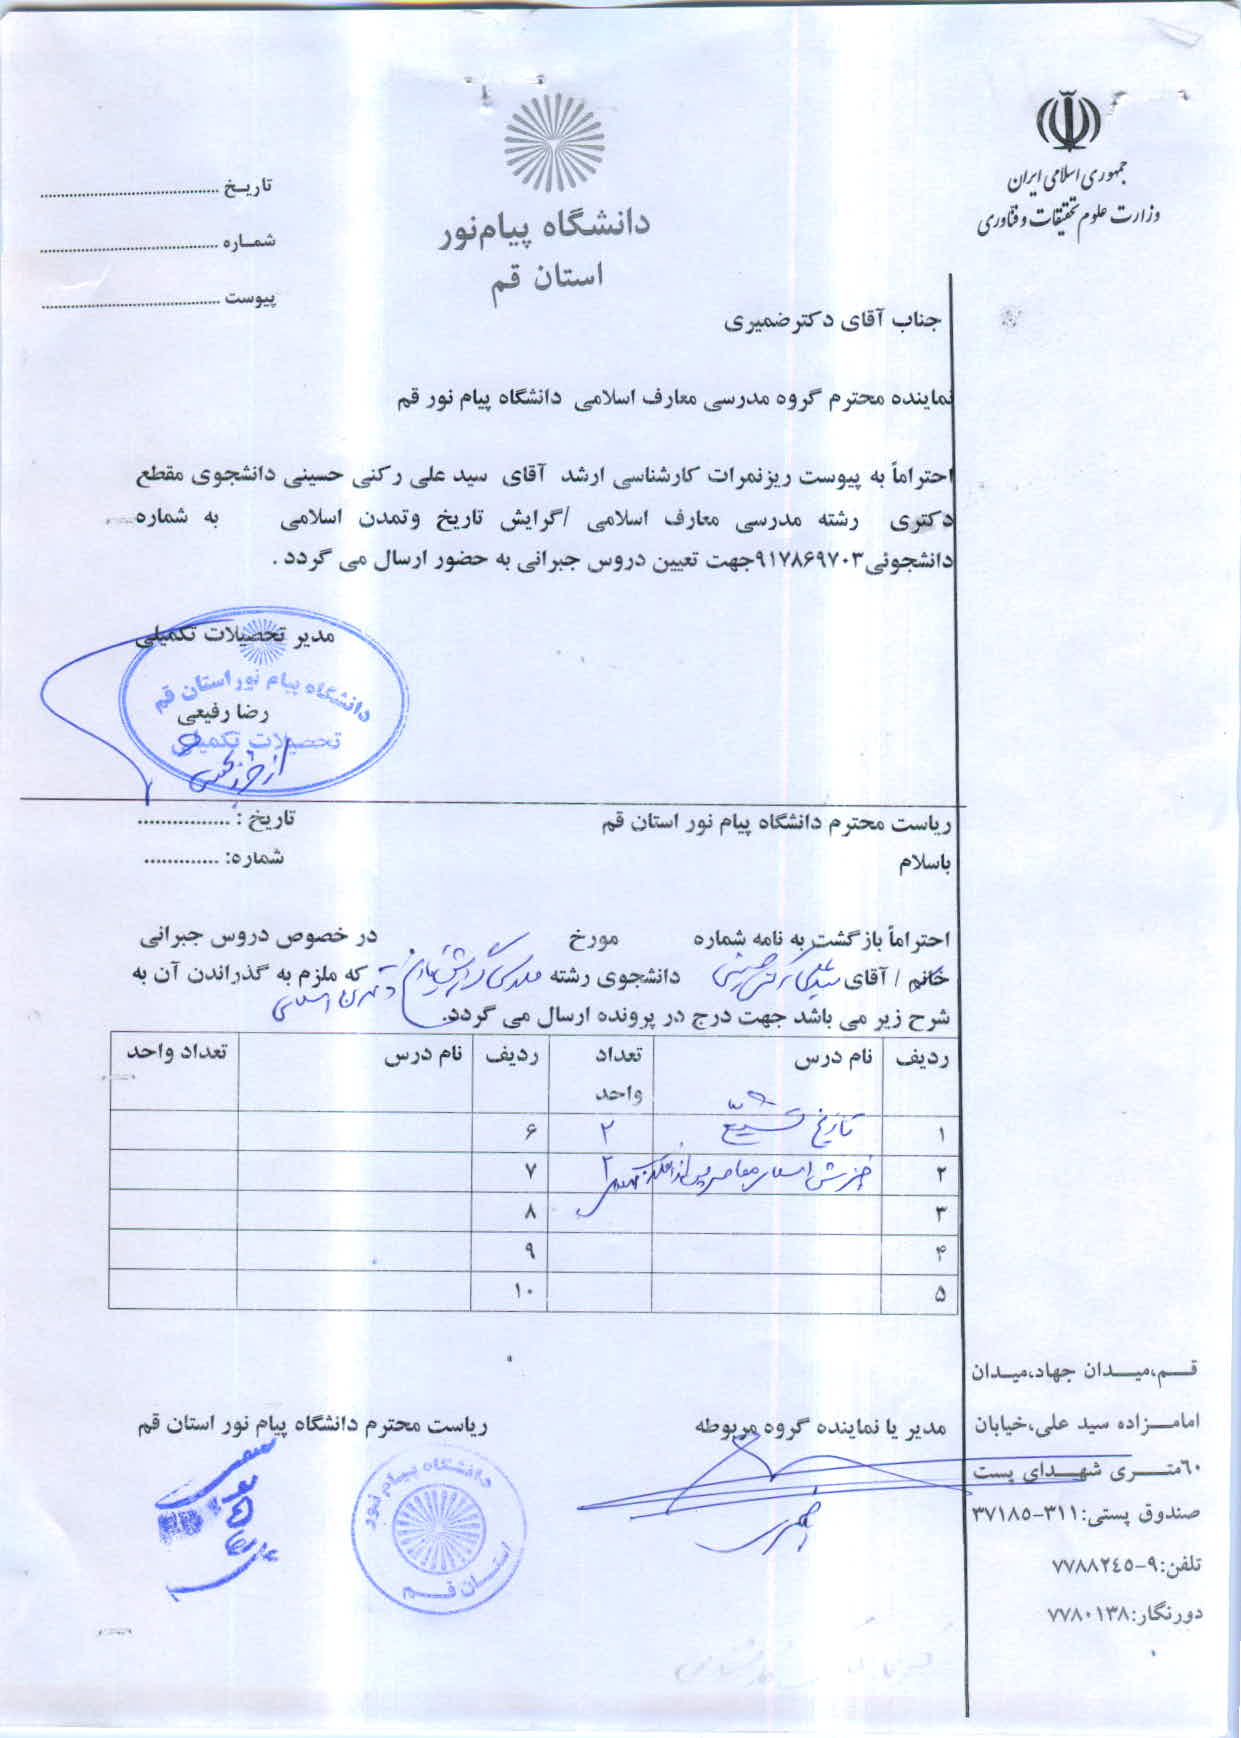 جمهوری اسلامی ایران
وزارت علوم تحقیقات و فناوری
دانشگاه پیام‌نور
استان قم
تاریـخ ........................................
شمـاره ........................................
پیوست ........................................
جناب آقای دکترضمیری
نماینده محترم گروه مدرسی معارف اسلامی دانشگاه پیام نور قم
احتراماً به پیوست ریزنمرات کارشناسی ارشد آقای سید علی رکنی حسینی دانشجوی مقطع
دکتری رشته مدرسی معارف اسلامی /گرایش تاریخ وتمدن اسلامی به شماره
دانشجوئی۹۱۷۸۶۹۷۰۳جهت تعیین دروس جبرانی به حضور ارسال می گردد .
مدیر تحصیلات تکمیلی
دانشگاه پیام نور استان قم
رضا رفیعی
تحصیلات تکمیلی
ریاست محترم دانشگاه پیام نور استان قم
تاریخ : ................
باسلام
شماره: .............
احتراماً بازگشت به نامه شماره مورخ در خصوص دروس جبرانی
خانم / آقای سید علی رکنی حسینی دانشجوی رشته مدرسی گرایش تاریخ و تمدن اسلامی که ملزم به گذراندن آن به
شرح زیر می باشد جهت درج در پرونده ارسال می گردد.
ردیف نام درس تعداد واحد ردیف نام درس تعداد واحد
۱ تاریخ تشیع ۲ ۶
۲ معاصر ۲ ۷
۳ ۸
۴ ۹
۵ ۱۰
مدیر یا نماینده گروه مربوطه
ریاست محترم دانشگاه پیام نور استان قم
دانشگاه پیام نور
استان قم
قـــم،میـــدان جهاد،میـدان
امامـــزاده سید علی،خیابان
٦٠متـــری شهـــدای پست
صندوق پستی:۳۱۱-۳۷۱۸۵
تلفن:۹-۷۷۸۸۲٤٥
دورنگار:۷۷۸۰۱۳۸